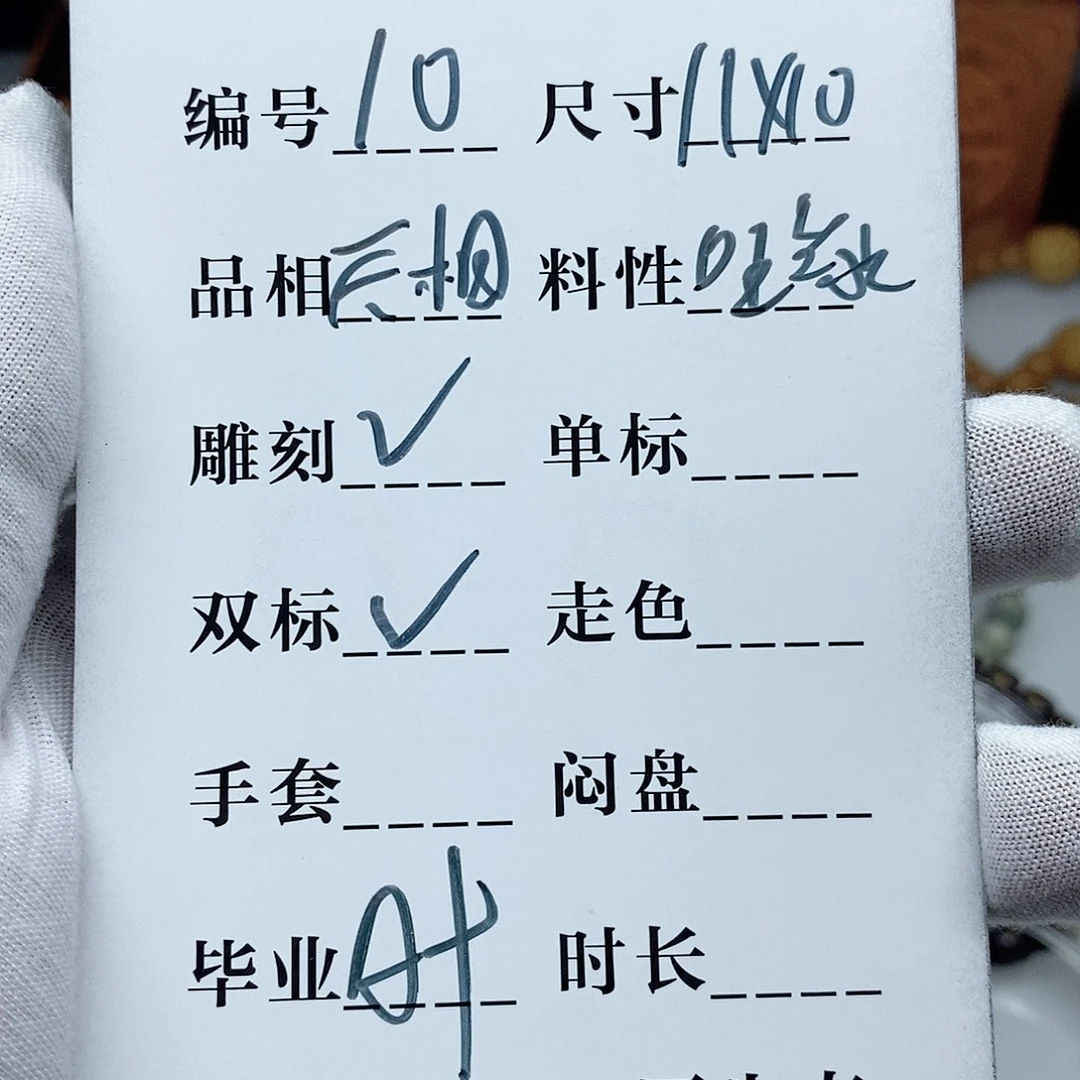 编号10 尺寸11X10
品相 相 料性
雕刻✓ 单标____
双标✓ 走色____
手套____ 闷盘____
毕业A+ 时长____